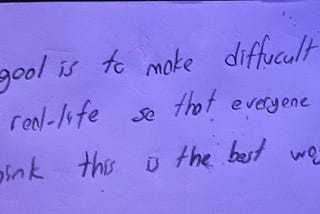 good is to make diffucult
real-life so that everyone
think this is the best